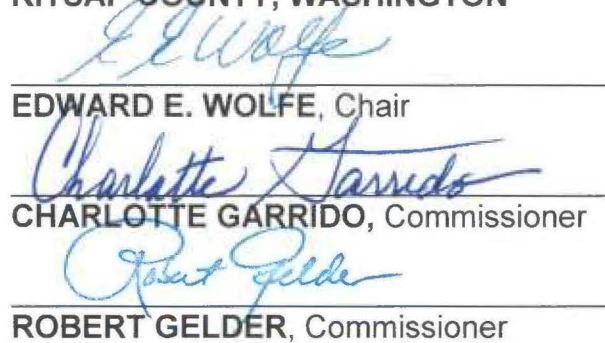 KITSAP COUNTY, WASHINGTON
E E Wolfe
EDWARD E. WOLFE, Chair
Charlotte Garrido
CHARLOTTE GARRIDO, Commissioner
Robert Gelder
ROBERT GELDER, Commissioner